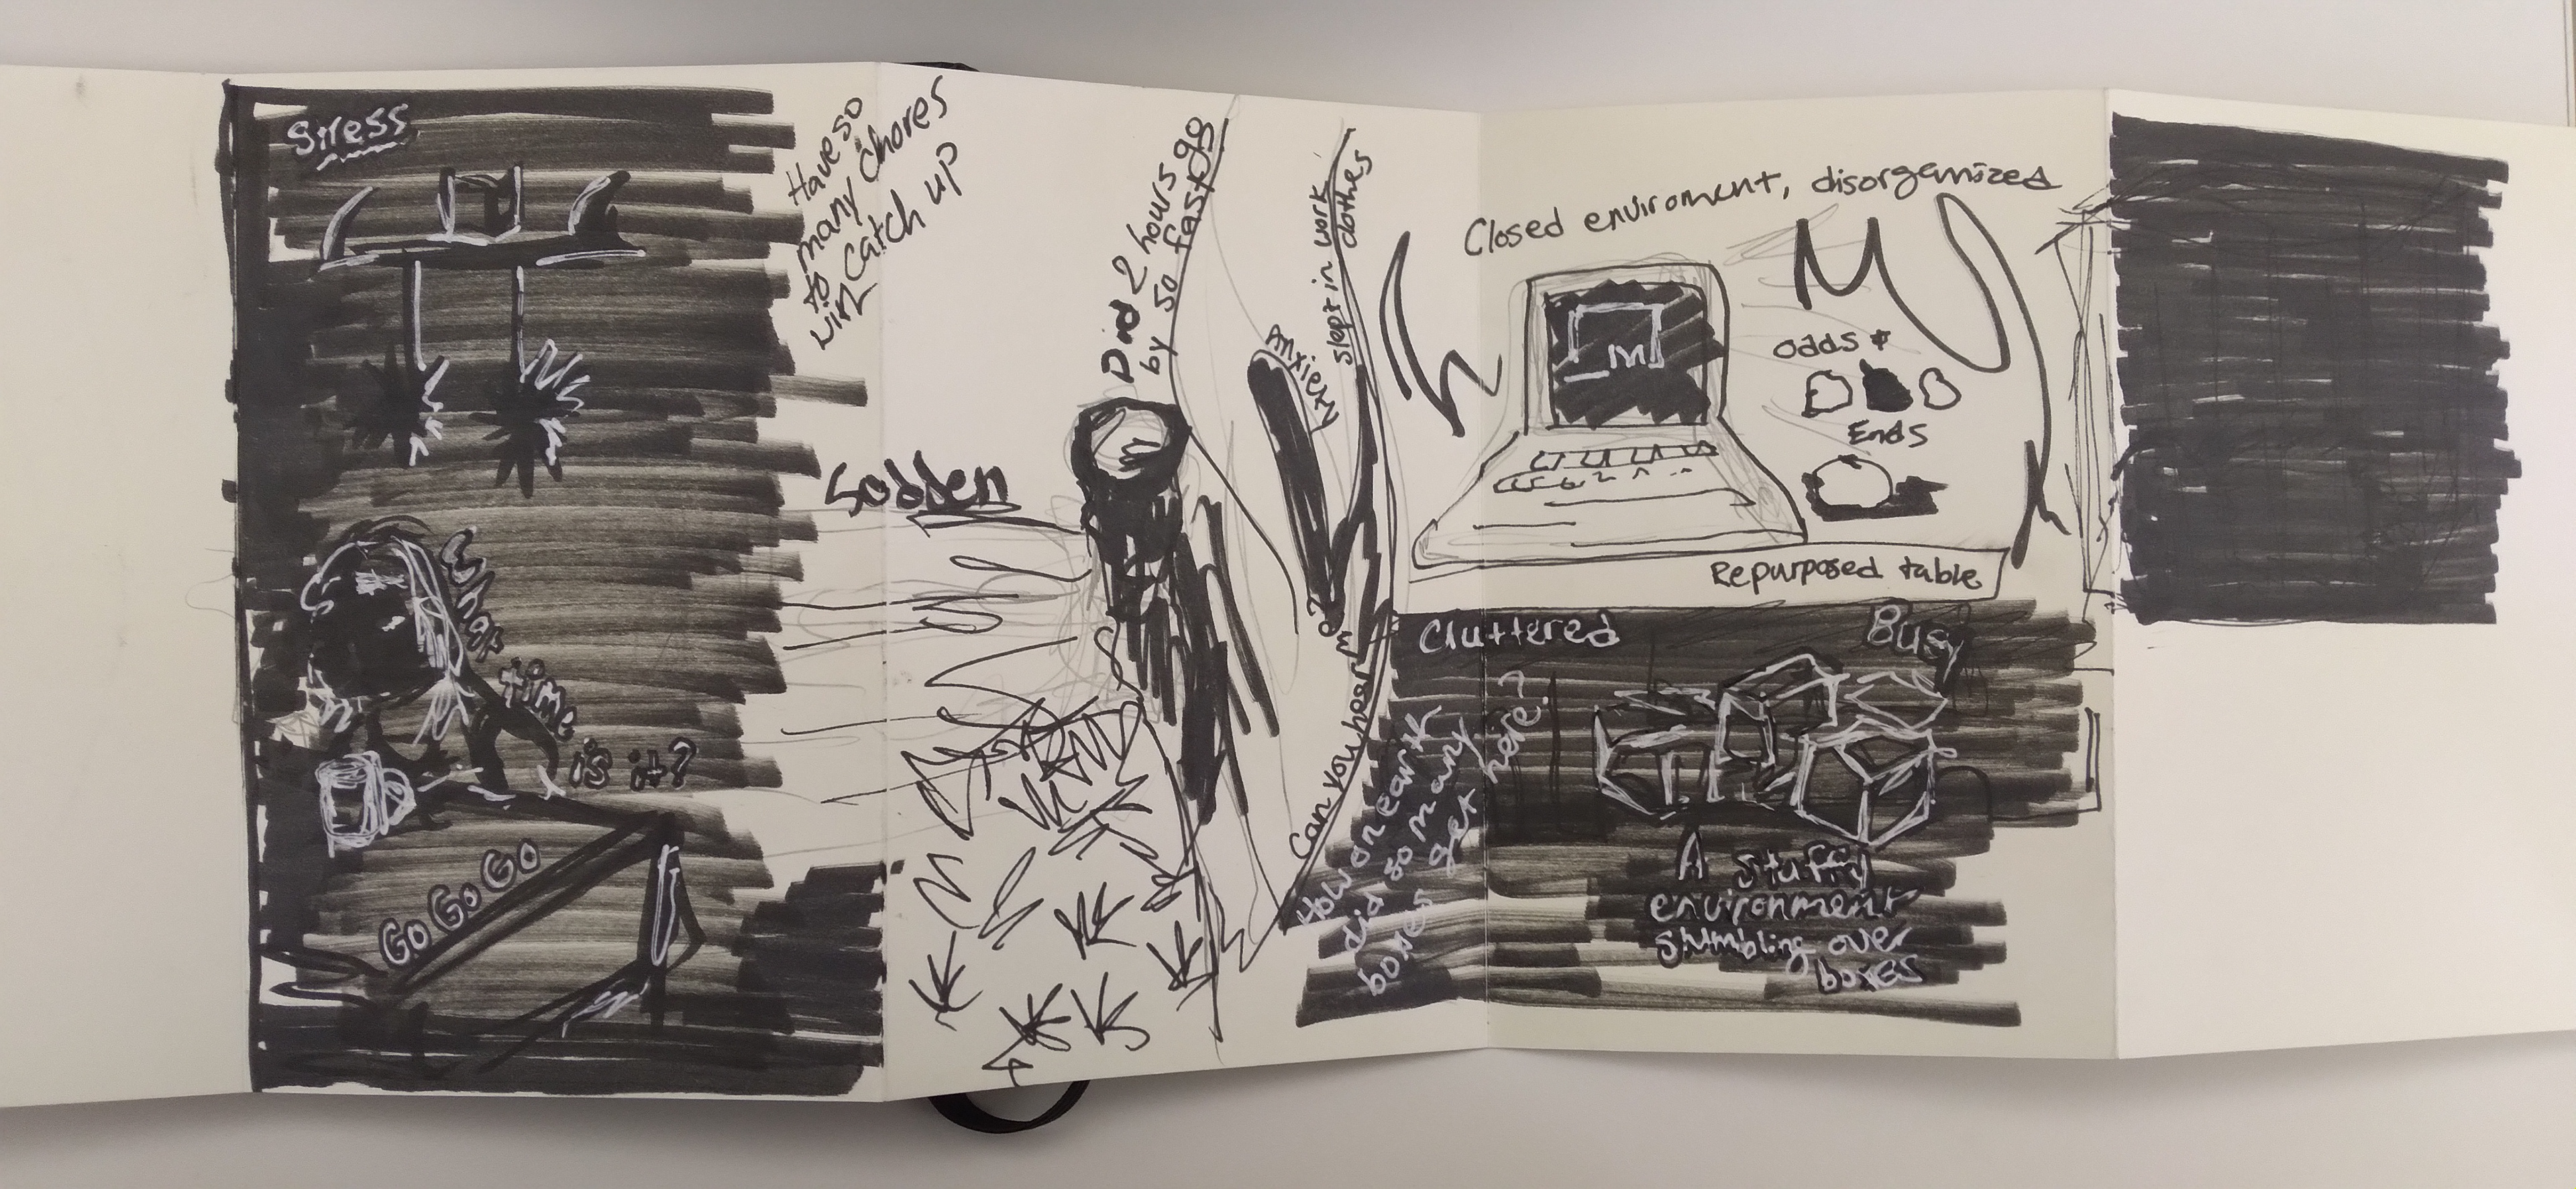 Stress
Have so
many chores
to catch up
with
What
time
is it?
Go Go Go
Sodden
Did 2 hours go
by so fast
Anxiety
slept in work
clothes
Can you hear me?
Closed enviroment, disorganized
odds &
Ends
Repurposed table
Cluttered
Busy
How on earth
did so many
boxes get here?
A stuffy
environment
stumbling over
boxes